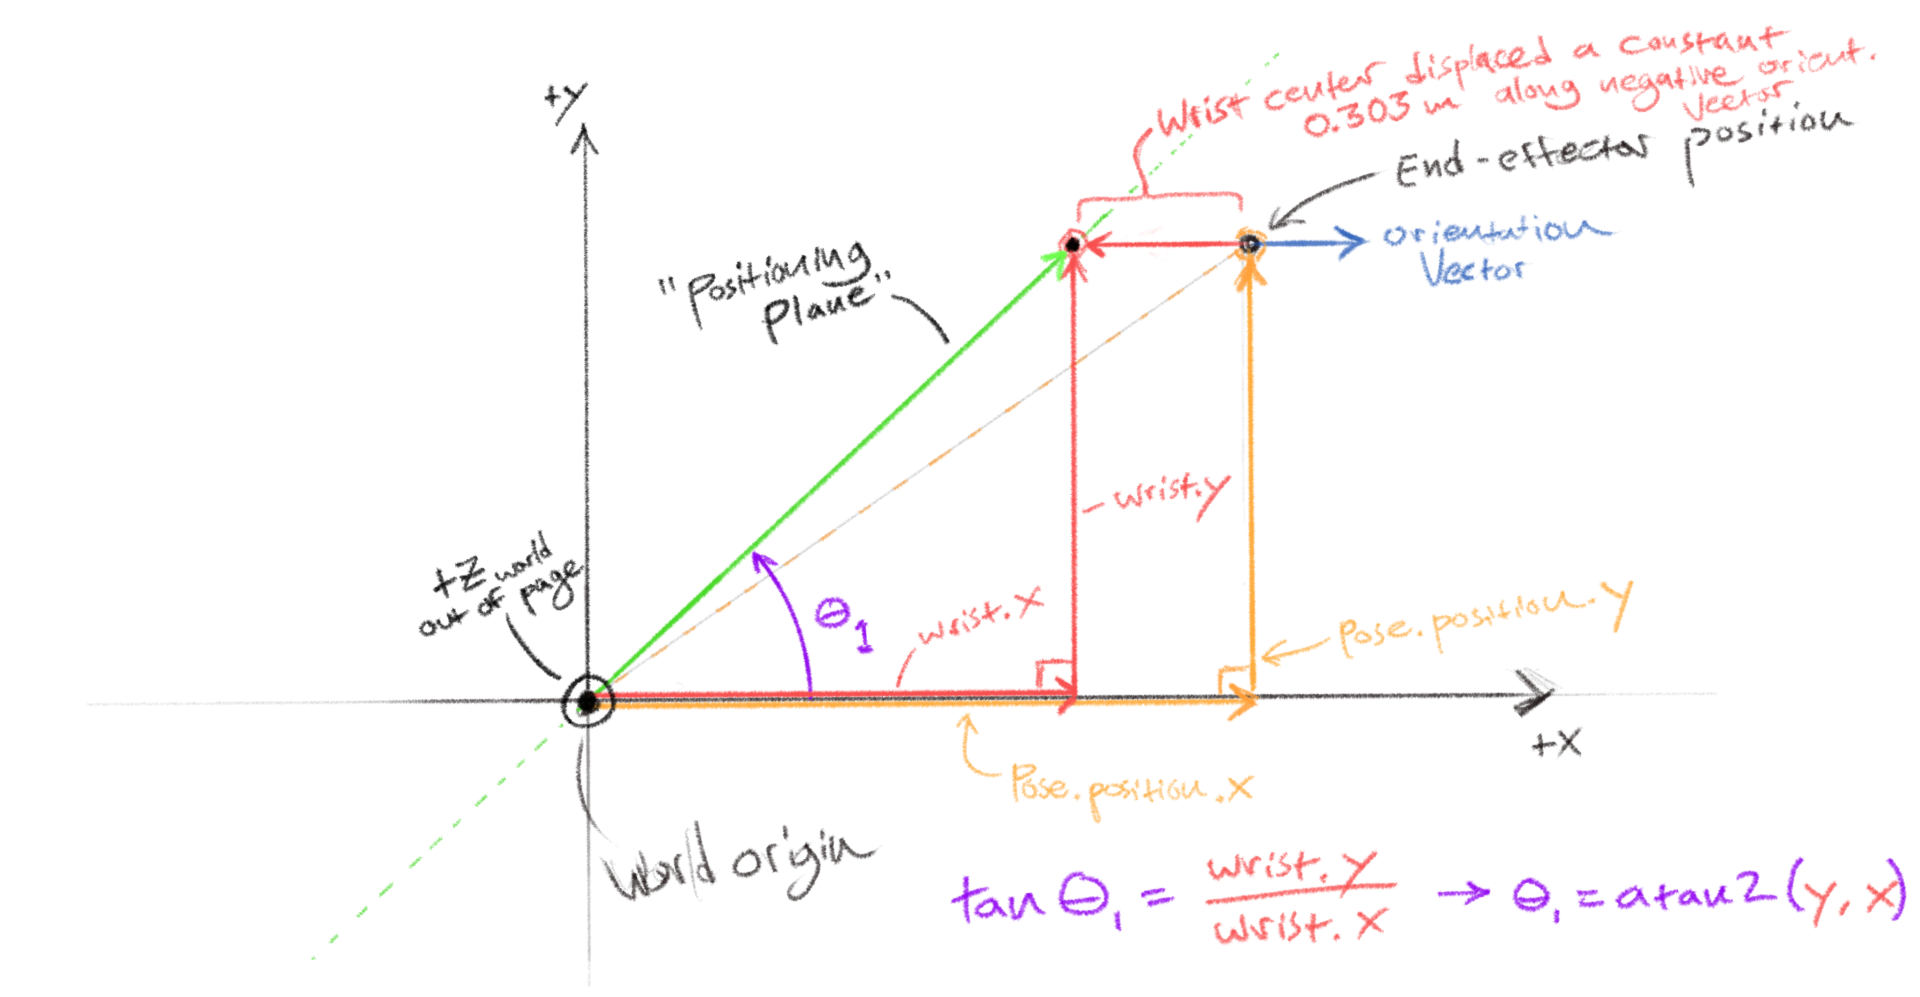 +y
Wrist center displaced a constant
0.303 m along negative orient.
vector
End-effector position
orientation
Vector
"Positioning
Plane"
-wrist.y
+Z world
out of page
θ1
wrist.x
Pose.position.y
+X
Pose.position.x
World origin
tan θ1 = wrist.y / wrist.x → θ1 = atan2(y, x)